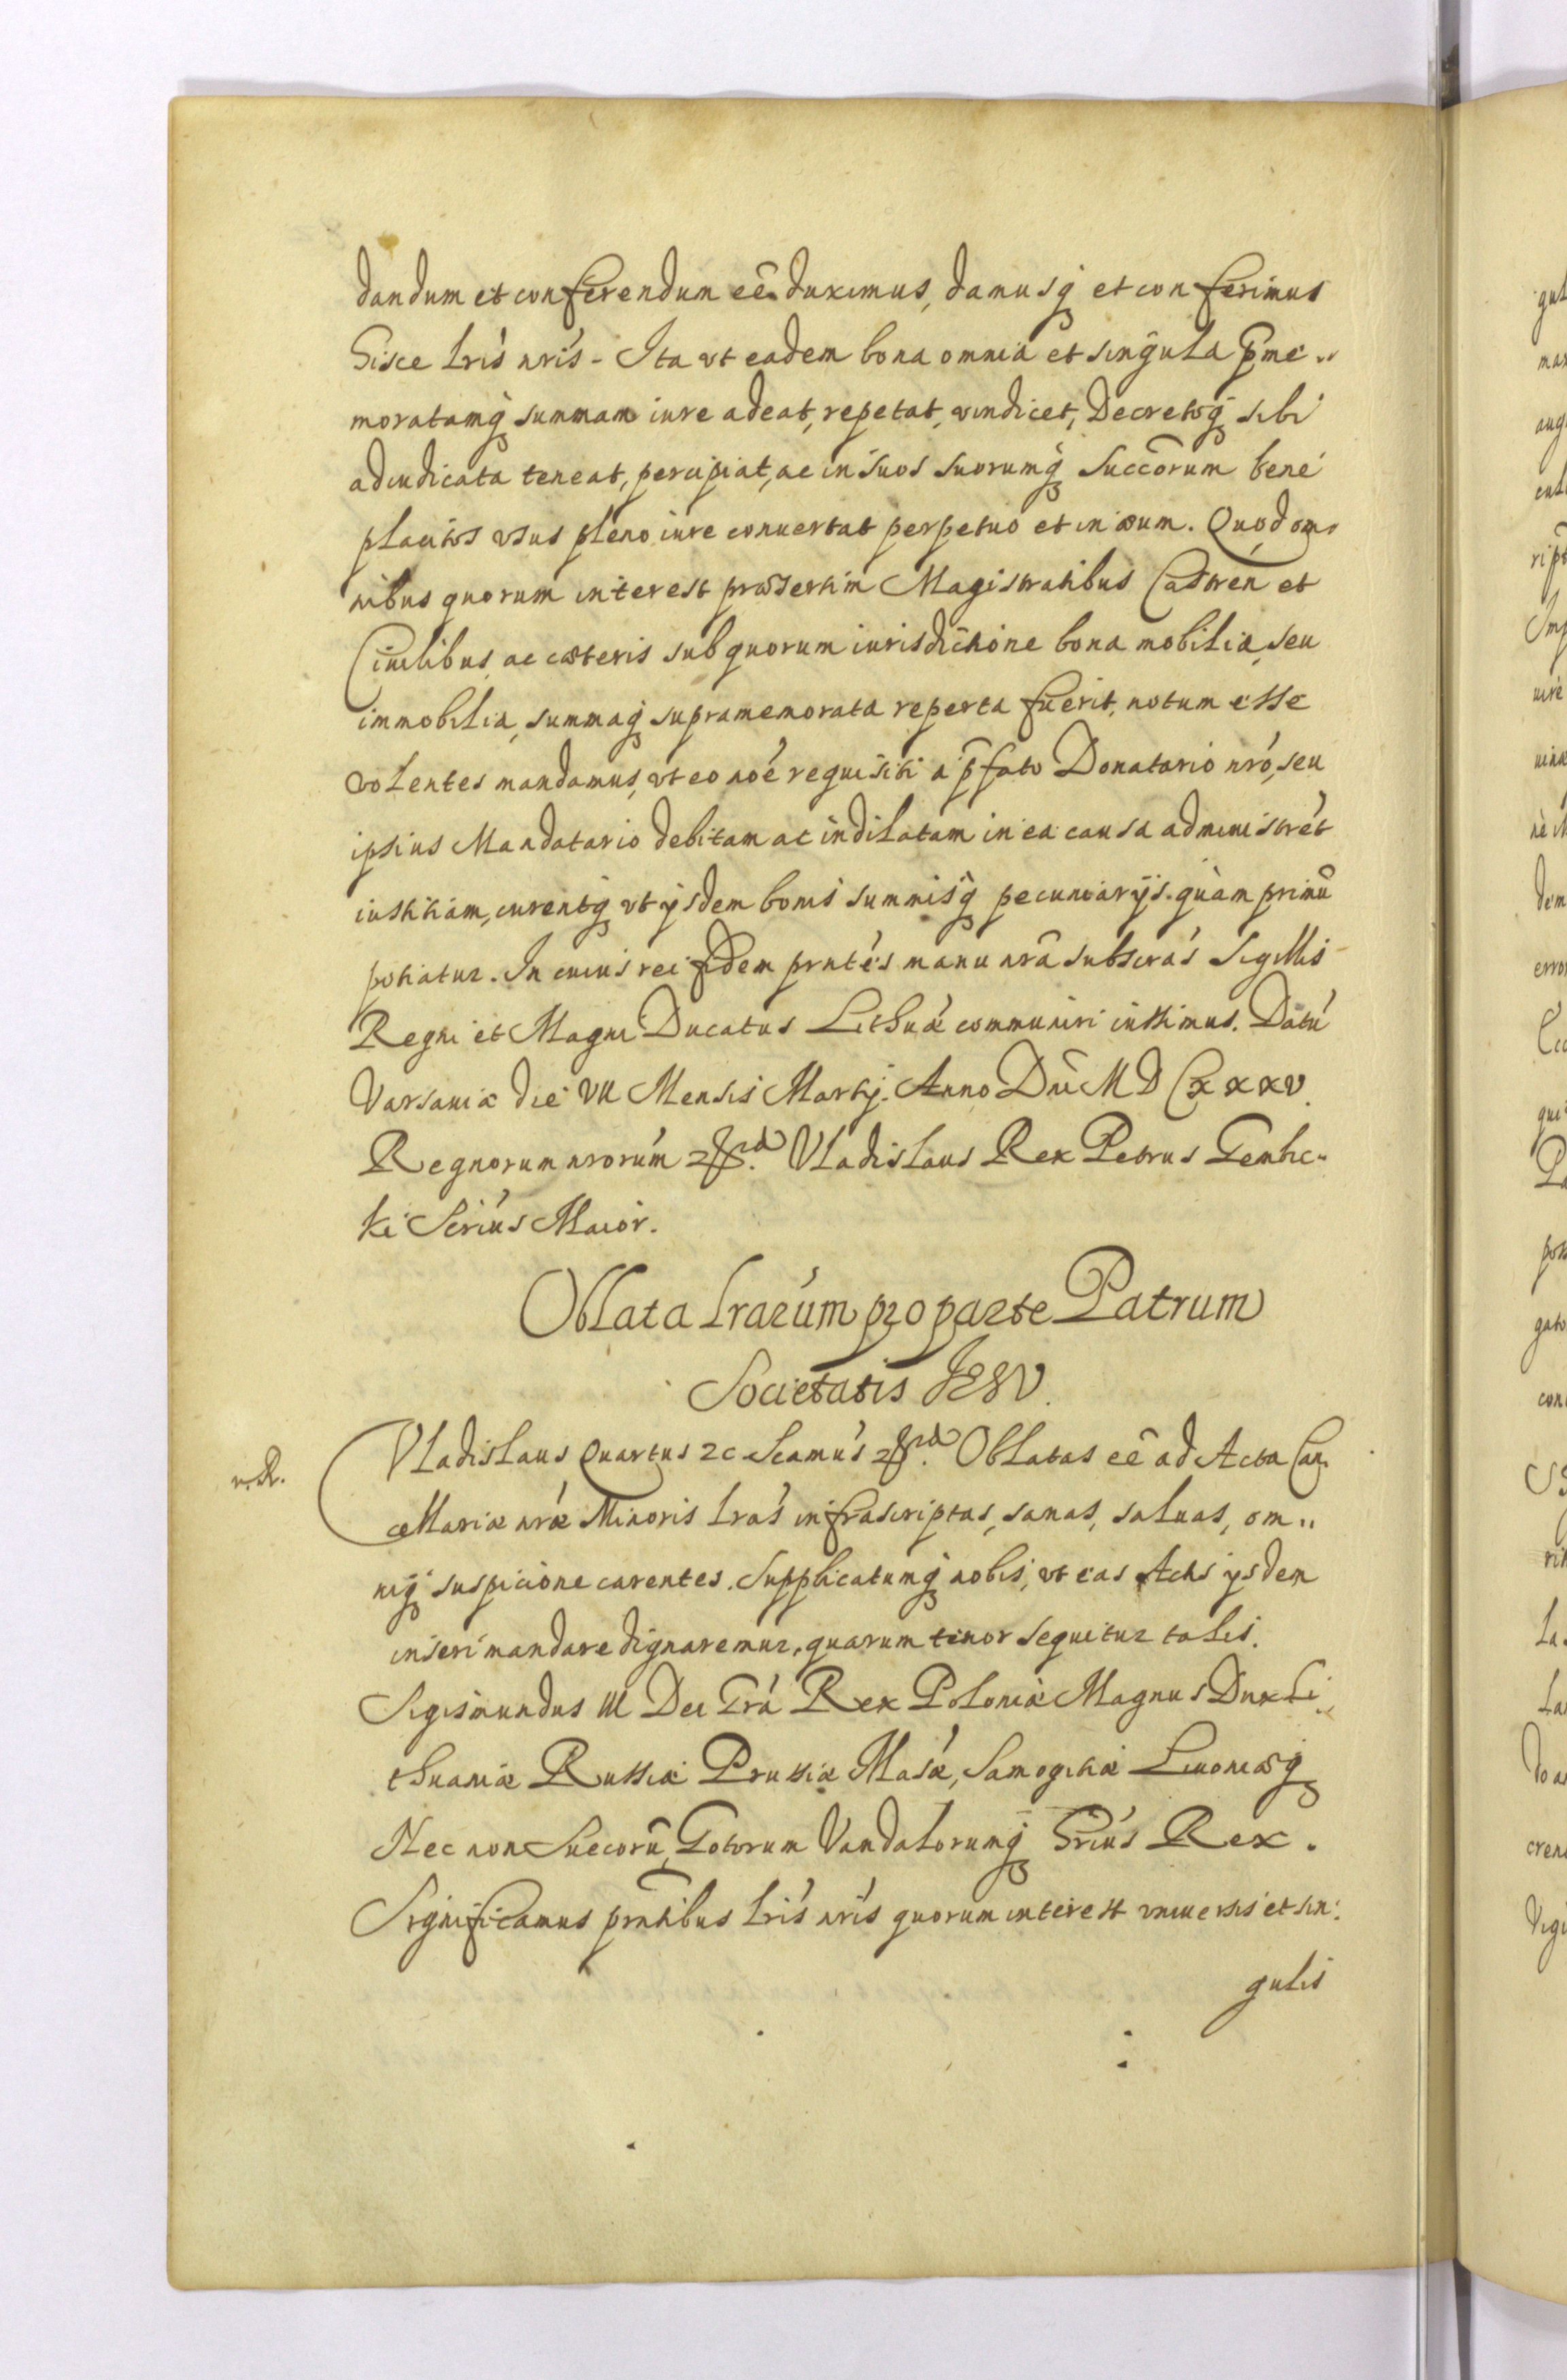 dandum et conferendum eê duximus, damusq et conferimus
hisce lrís nrís - Ita vt eadem bona omnia et singula p̃me„
moratamq summam iure adeat, repetat, vindicet, Decretoq sibi
adiudicata teneat, percipiat, ac in suos suorumq Succõrum bene
placitos vsus pleno iure conuertat perpetuo et in æuum. Quod om„
nibus quorum interest præsertim Magistratibus Castren et
Ciuilibus, ac cæteris sub quorum iurisdictione bona mobilia, seu
immobilia, summaq supramemorata reperta fuerit, notum esse
volentes mandamus, vt eo noé requisiti a p̃fato Donatario nró, seu
ipsius Mandatario debitam ac indilatam in ea causa administrét
iustitiam, curentq vt ijsdem bonis summisq pecuniarijs quàm primũ
potiatur. In cuius rei fidem prntés manu nrâ subscrás Sigillis
Regni et Magni Ducatus Lithuæ communiri iussimus. Datú
Varsauiæ die VII Mensis Martij. Anno Dñi M D CXXXV.
Regnorum nrorúm &. Vladislaus Rex Petrus Gembic„
ki Scriús Maior.
Oblata Lrarúm pro parte Patrum
Societatis JESV.
v. R.
Vladislaus Quartus 2c Scamús &. Oblatas eê ad Acta Can„
cellariæ nræ Minoris lrás infrascriptas, sanas, saluas, om„
niq suspicione carentes. Supplicatumq nobis, vt eas Actis ijsdem
inseri mandare dignaremur, quarum tenor sequitur talis.
Sigismundus III Dei Grá Rex Poloniæ Magnus Dux Li„
thuaniæ Russiæ Prussiæ Masæ, Samogitiæ Liuoniæq
Nec non Suecorũ, Gotorum Vandalorumq hriús Rex.
Significamus prntibus lrís nrís quorum interest vniuersis et sin:
gulis